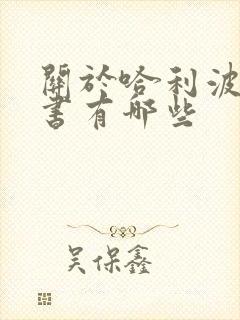 關於哈利波
書有哪些
吳保鑫